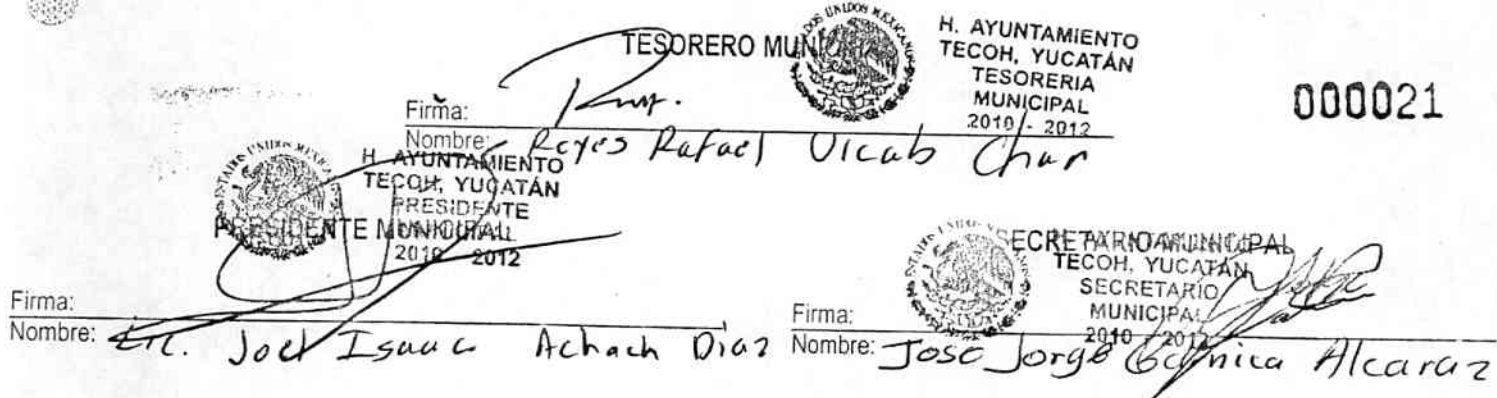 TESORERO MUNICIPAL
ESTADOS UNIDOS MEXICANOS
H. AYUNTAMIENTO
TECOH, YUCATÁN
TESORERIA
MUNICIPAL
2010 - 2012
000021
Firma:
Nombre: Reyes Rafael Uicab Chan
ESTADOS UNIDOS MEXICANOS
H. AYUNTAMIENTO
TECOH, YUCATÁN
PRESIDENTE
MUNICIPAL
2010 2012
PRESIDENTE MUNICIPAL
Firma:
Nombre: Joel Isaac Achach Diaz
SECRETARIO MUNICIPAL
ESTADOS UNIDOS
H. AYUNTAMIENTO
TECOH, YUCATÁN
SECRETARIO
MUNICIPAL
2010 2012
Firma:
Nombre: Jose Jorge Garnica Alcaraz